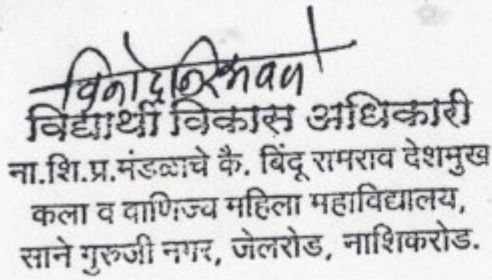 विद्यार्थी विकास अधिकारी
ना.शि.प्र.मंडळाचे कै. बिंदू रामराव देशमुख
कला व वाणिज्य महिला महाविद्यालय,
साने गुरुजी नगर, जेलरोड, नाशिकरोड.